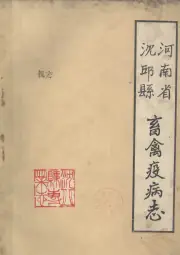 河南省
沈邱縣
畜禽疫病志